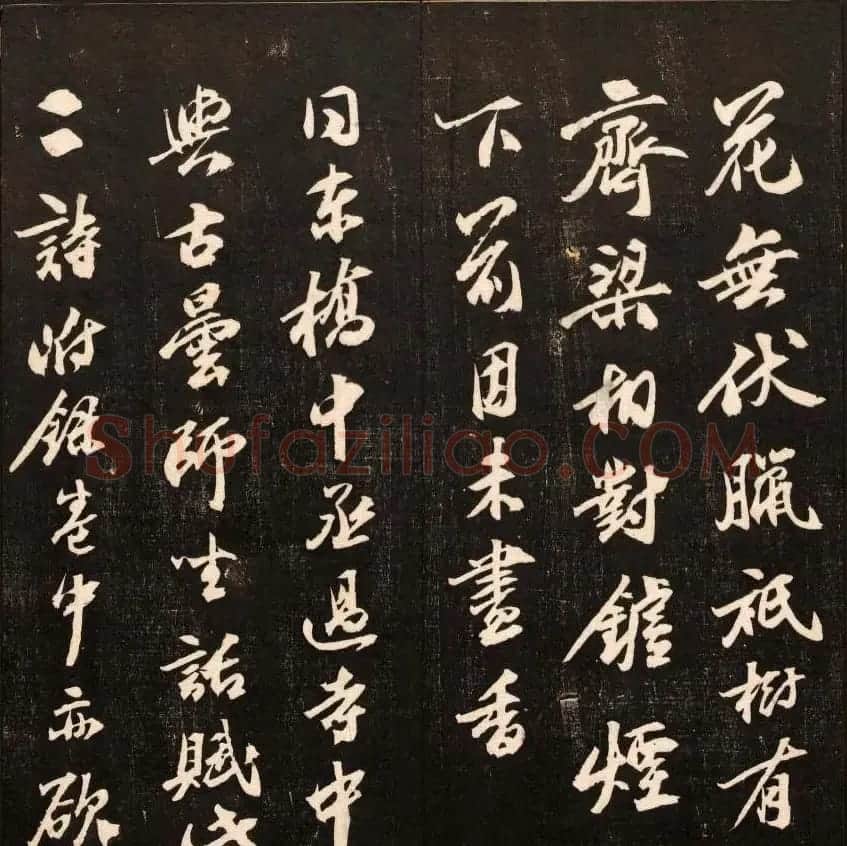 花無伏臘祇樹有
齊梁相對鑪煙
下前因未盡香
同東橋中丞過寺中
與古曇師坐話賦
二詩附錄卷中亦
Shufaziliao.COM